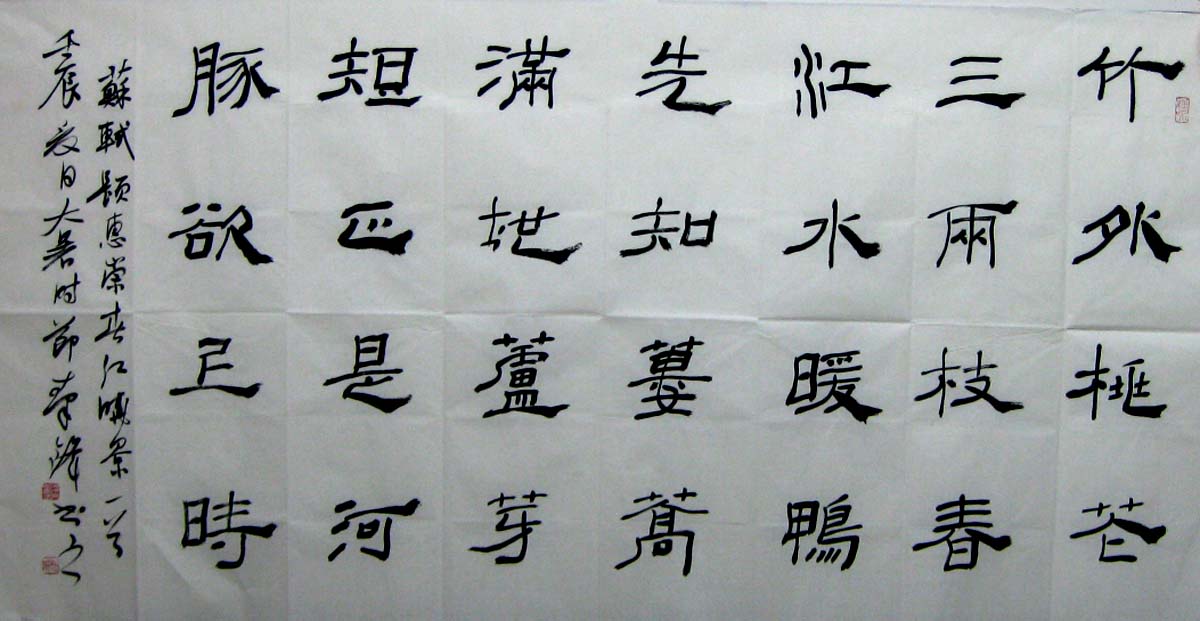 竹外桃花
三兩枝春
江水暖鴨
先知蔞蒿
滿地蘆芽
短正是河
豚欲上時
蘇軾題惠崇春江曉景一首
壬辰夏日大暑时節书之